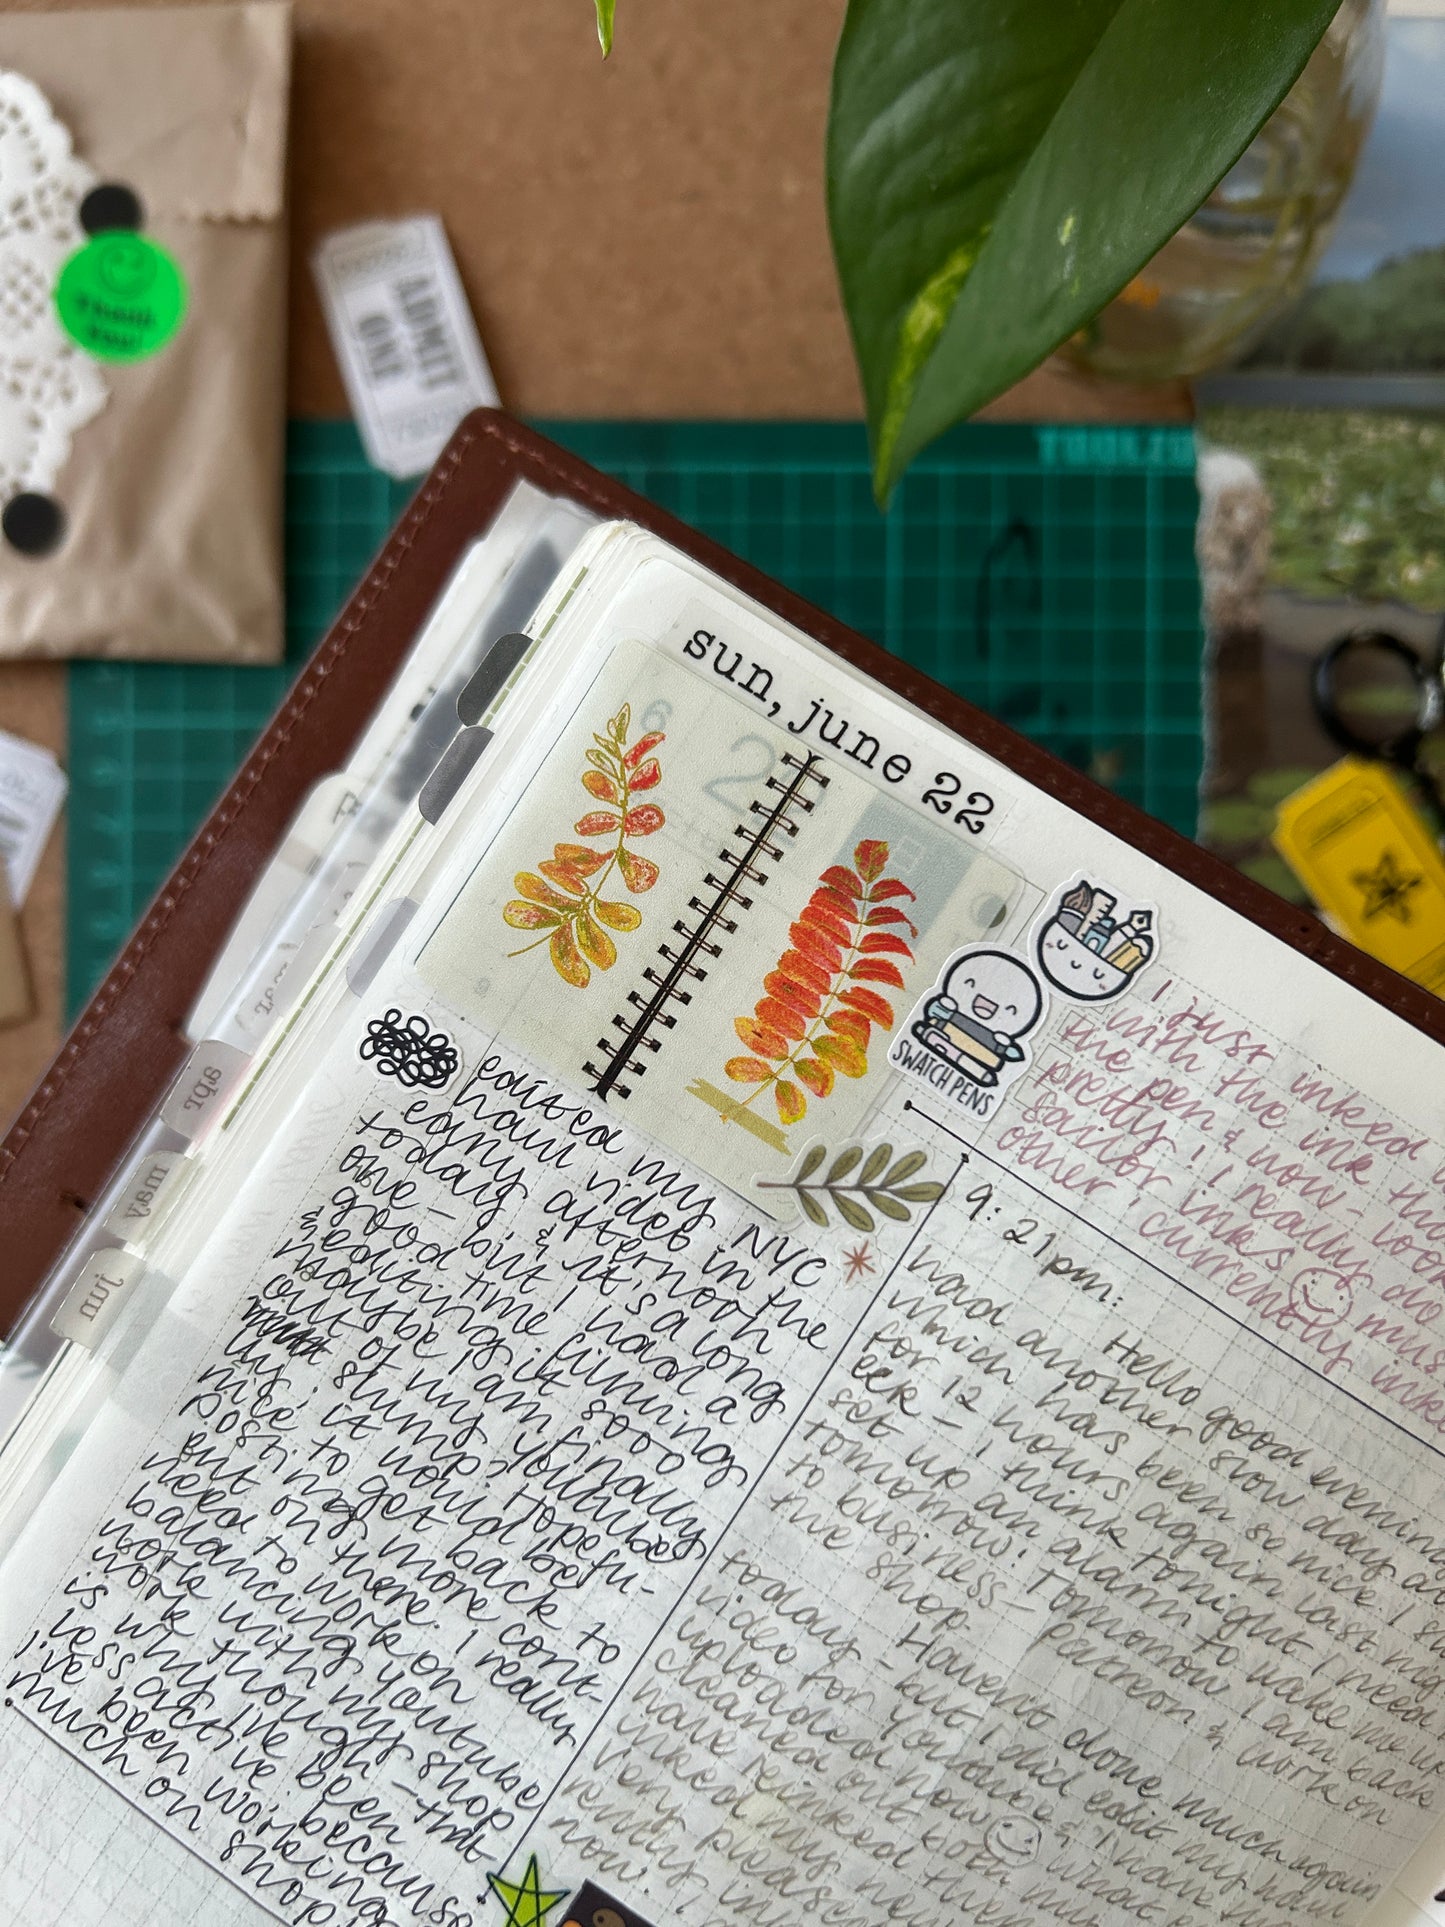 Thank
you!
ADMIT
ONE
apr
may
jun
sun, june 22
6
SWATCH PENS
I just inked
with the ink tha
the pen & now - look
pretty! I really do
sailor inks mus
other, currently inke
edited my NYC
haul video in the
early afternoon
today & it's a long
one - but I had a
good time filming
& editing it sooo
maybe I am finally
out of my youtube
slump, Hopefu-
lly. it would be
nice to now get back to
post more cont-
ent on there. I really
need to work on
balancing youtube
work with my shop
work though - tht
is why I've been
less active because
I've been working
much on shop
9:21pm: Hello good evening
had another slow day
which has been so nice. I
for 12 hours again last night
eek - I think tonight I need
set up an alarm to wake me up
tomorrow! Tomorrow I am back
to business - patreon & work on
the shop.
today - Haven't done much again
but I did edit my haul
video for Youtube & I have
uploaded now what
cleaned out both my
have reinked them
inked my new
pleased
really in
now. I